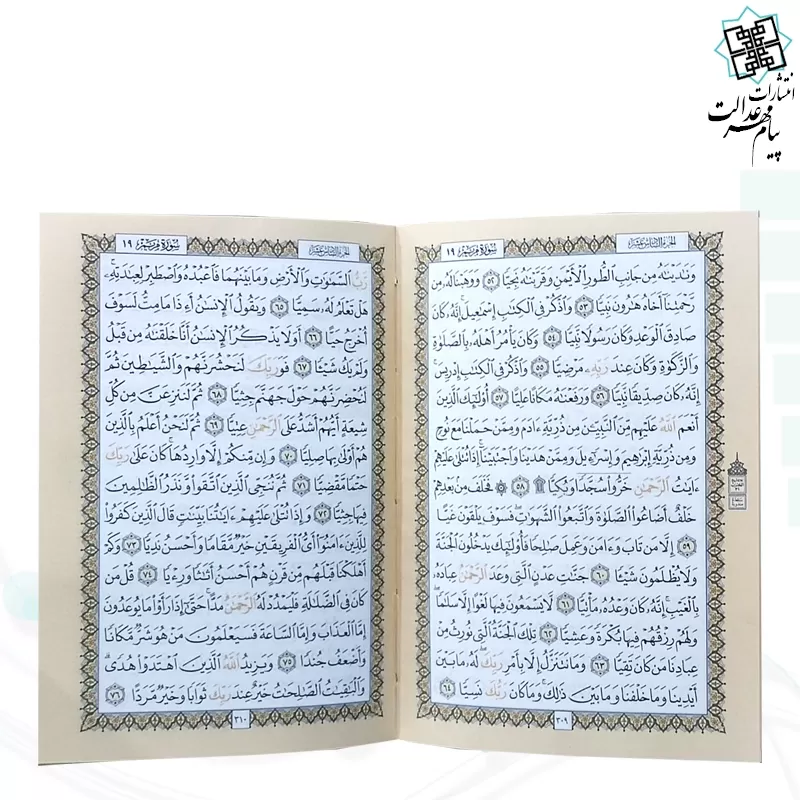 انتشارات
پیام مهر عدالت
الجزء السادس عشر
سورة مريم ١٩
وَنَٰدَيْنَٰهُ مِن جَانِبِ ٱلطُّورِ ٱلْأَيْمَنِ وَقَرَّبْنَٰهُ نَجِيًّا ٥٢ وَوَهَبْنَا لَهُۥ مِن
رَّحْمَتِنَآ أَخَاهُ هَٰرُونَ نَبِيًّا ٥٣ وَٱذْكُرْ فِى ٱلْكِتَٰبِ إِسْمَٰعِيلَ إِنَّهُۥ كَانَ
صَادِقَ ٱلْوَعْدِ وَكَانَ رَسُولًا نَّبِيًّا ٥٤ وَكَانَ يَأْمُرُ أَهْلَهُۥ بِٱلصَّلَوٰةِ
وَٱلزَّكَوٰةِ وَكَانَ عِندَ رَبِّهِۦ مَرْضِيًّا ٥٥ وَٱذْكُرْ فِى ٱلْكِتَٰبِ إِدْرِيسَ
إِنَّهُۥ كَانَ صِدِّيقًا نَّبِيًّا ٥٦ وَرَفَعْنَٰهُ مَكَانًا عَلِيًّا ٥٧ أُو۟لَٰٓئِكَ ٱلَّذِينَ
أَنْعَمَ ٱللَّهُ عَلَيْهِم مِّنَ ٱلنَّبِيِّۦنَ مِن ذُرِّيَّةِ ءَادَمَ وَمِمَّنْ حَمَلْنَا مَعَ نُوحٍ
وَمِن ذُرِّيَّةِ إِبْرَٰهِيمَ وَإِسْرَٰٓءِيلَ وَمِمَّنْ هَدَيْنَا وَٱجْتَبَيْنَآ إِذَا تُتْلَىٰ عَلَيْهِمْ
ءَايَٰتُ ٱلرَّحْمَٰنِ خَرُّوا۟ سُجَّدًا وَبُكِيًّا ۩ ٥٨ ۞ فَخَلَفَ مِنۢ بَعْدِهِمْ
خَلْفٌ أَضَاعُوا۟ ٱلصَّلَوٰةَ وَٱتَّبَعُوا۟ ٱلشَّهَوَٰتِ فَسَوْفَ يَلْقَوْنَ غَيًّا
٥٩ إِلَّا مَن تَابَ وَءَامَنَ وَعَمِلَ صَٰلِحًا فَأُو۟لَٰٓئِكَ يَدْخُلُونَ ٱلْجَنَّةَ
وَلَا يُظْلَمُونَ شَيْـًٔا ٦٠ جَنَّٰتِ عَدْنٍ ٱلَّتِى وَعَدَ ٱلرَّحْمَٰنُ عِبَادَهُۥ
بِٱلْغَيْبِ إِنَّهُۥ كَانَ وَعْدُهُۥ مَأْتِيًّا ٦١ لَّا يَسْمَعُونَ فِيهَا لَغْوًا إِلَّا سَلَٰمًا
وَلَهُمْ رِزْقُهُمْ فِيهَا بُكْرَةً وَعَشِيًّا ٦٢ تِلْكَ ٱلْجَنَّةُ ٱلَّتِى نُورِثُ مِنْ
عِبَادِنَا مَن كَانَ تَقِيًّا ٦٣ وَمَا نَتَنَزَّلُ إِلَّا بِأَمْرِ رَبِّكَ لَهُۥ مَا بَيْنَ
أَيْدِينَا وَمَا خَلْفَنَا وَمَا بَيْنَ ذَٰلِكَ وَمَا كَانَ رَبُّكَ نَسِيًّا ٦٤
٣٠٩
الجزء السادس عشر
سورة مريم ١٩
رَّبُّ ٱلسَّمَٰوَٰتِ وَٱلْأَرْضِ وَمَا بَيْنَهُمَا فَٱعْبُدْهُ وَٱصْطَبِرْ لِعِبَٰدَتِهِۦ
هَلْ تَعْلَمُ لَهُۥ سَمِيًّا ٦٥ وَيَقُولُ ٱلْإِنسَٰنُ أَءِذَا مَا مِتُّ لَسَوْفَ
أُخْرَجُ حَيًّا ٦٦ أَوَلَا يَذْكُرُ ٱلْإِنسَٰنُ أَنَّا خَلَقْنَٰهُ مِن قَبْلُ
وَلَمْ يَكُ شَيْـًٔا ٦٧ فَوَرَبِّكَ لَنَحْشُرَنَّهُمْ وَٱلشَّيَٰطِينَ ثُمَّ
لَنُحْضِرَنَّهُمْ حَوْلَ جَهَنَّمَ جِثِيًّا ٦٨ ثُمَّ لَنَنزِعَنَّ مِن كُلِّ
شِيعَةٍ أَيُّهُمْ أَشَدُّ عَلَى ٱلرَّحْمَٰنِ عِتِيًّا ٦٩ ثُمَّ لَنَحْنُ أَعْلَمُ بِٱلَّذِينَ
هُمْ أَوْلَىٰ بِهَا صِلِيًّا ٧٠ وَإِن مِّنكُمْ إِلَّا وَارِدُهَا كَانَ عَلَىٰ رَبِّكَ
حَتْمًا مَّقْضِيًّا ٧١ ثُمَّ نُنَجِّى ٱلَّذِينَ ٱتَّقَوا۟ وَّنَذَرُ ٱلظَّٰلِمِينَ
فِيهَا جِثِيًّا ٧٢ وَإِذَا تُتْلَىٰ عَلَيْهِمْ ءَايَٰتُنَا بَيِّنَٰتٍ قَالَ ٱلَّذِينَ كَفَرُوا۟
لِلَّذِينَ ءَامَنُوٓا۟ أَىُّ ٱلْفَرِيقَيْنِ خَيْرٌ مَّقَامًا وَأَحْسَنُ نَدِيًّا ٧٣ وَكَمْ
أَهْلَكْنَا قَبْلَهُم مِّن قَرْنٍ هُمْ أَحْسَنُ أَثَٰثًا وَرِءْيًا ٧٤ قُلْ مَن
كَانَ فِى ٱلضَّلَٰلَةِ فَلْيَمْدُدْ لَهُ ٱلرَّحْمَٰنُ مَدًّا حَتَّىٰٓ إِذَا رَأَوْا۟ مَا يُوعَدُونَ
إِمَّا ٱلْعَذَابَ وَإِمَّا ٱلسَّاعَةَ فَسَيَعْلَمُونَ مَنْ هُوَ شَرٌّ مَّكَانًا
وَأَضْعَفُ جُندًا ٧٥ وَيَزِيدُ ٱللَّهُ ٱلَّذِينَ ٱهْتَدَوْا۟ هُدًى
وَٱلْبَٰقِيَٰتُ ٱلصَّٰلِحَٰتُ خَيْرٌ عِندَ رَبِّكَ ثَوَابًا وَخَيْرٌ مَّرَدًّا ٧٦
٣١٠